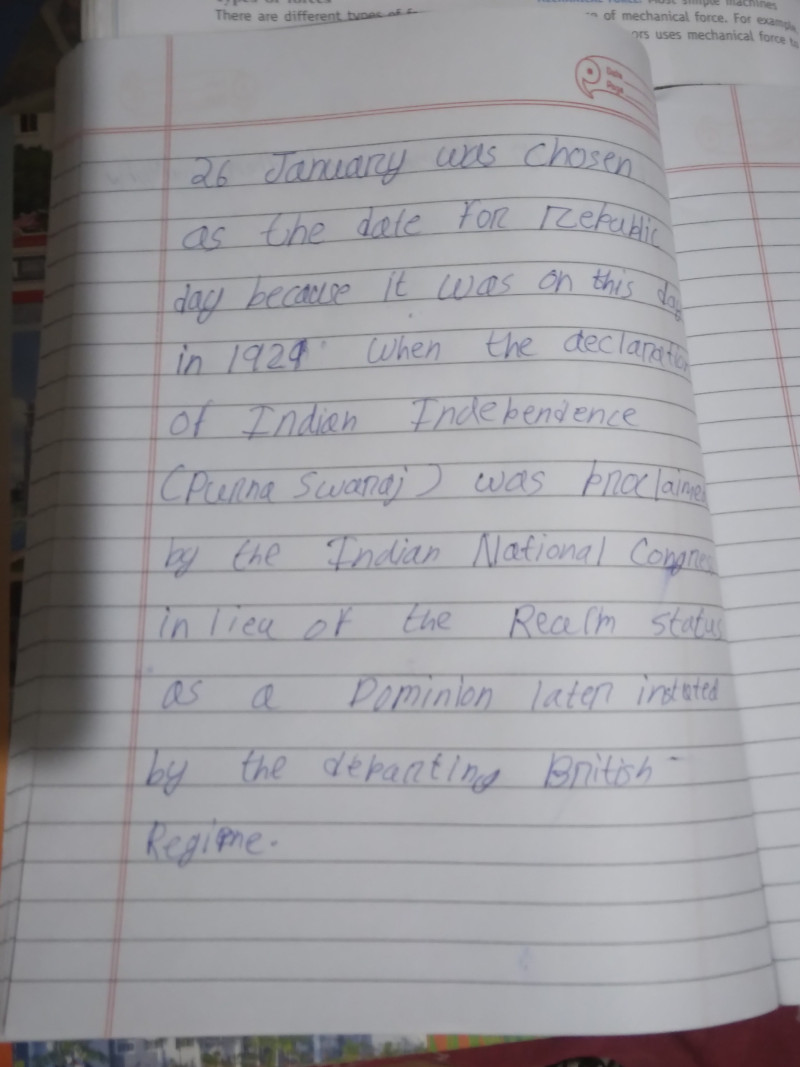 There are different types of
of mechanical force. For example,
ors uses mechanical force to
Date
Page
26 January was chosen
as the date for Republic
day because it was on this day
in 1929 when the declaration
of Indian Independence
(Purna Swaraj) was proclaimed
by the Indian National Congress
in lieu of the Realm status
as a Dominion later instated
by the departing British
Regime.